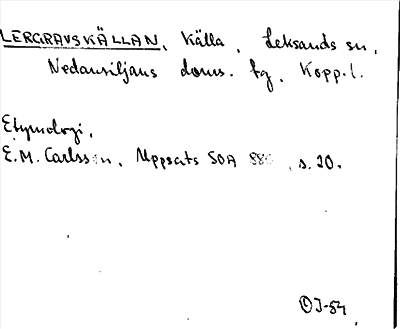 LERGRAVSKÄLLAN, källa, Leksands sn,
Nedansiljans doms. tg, Kopp. l.
Etymologi.
E.M. Carlsson, Uppsats SOA s. 20.